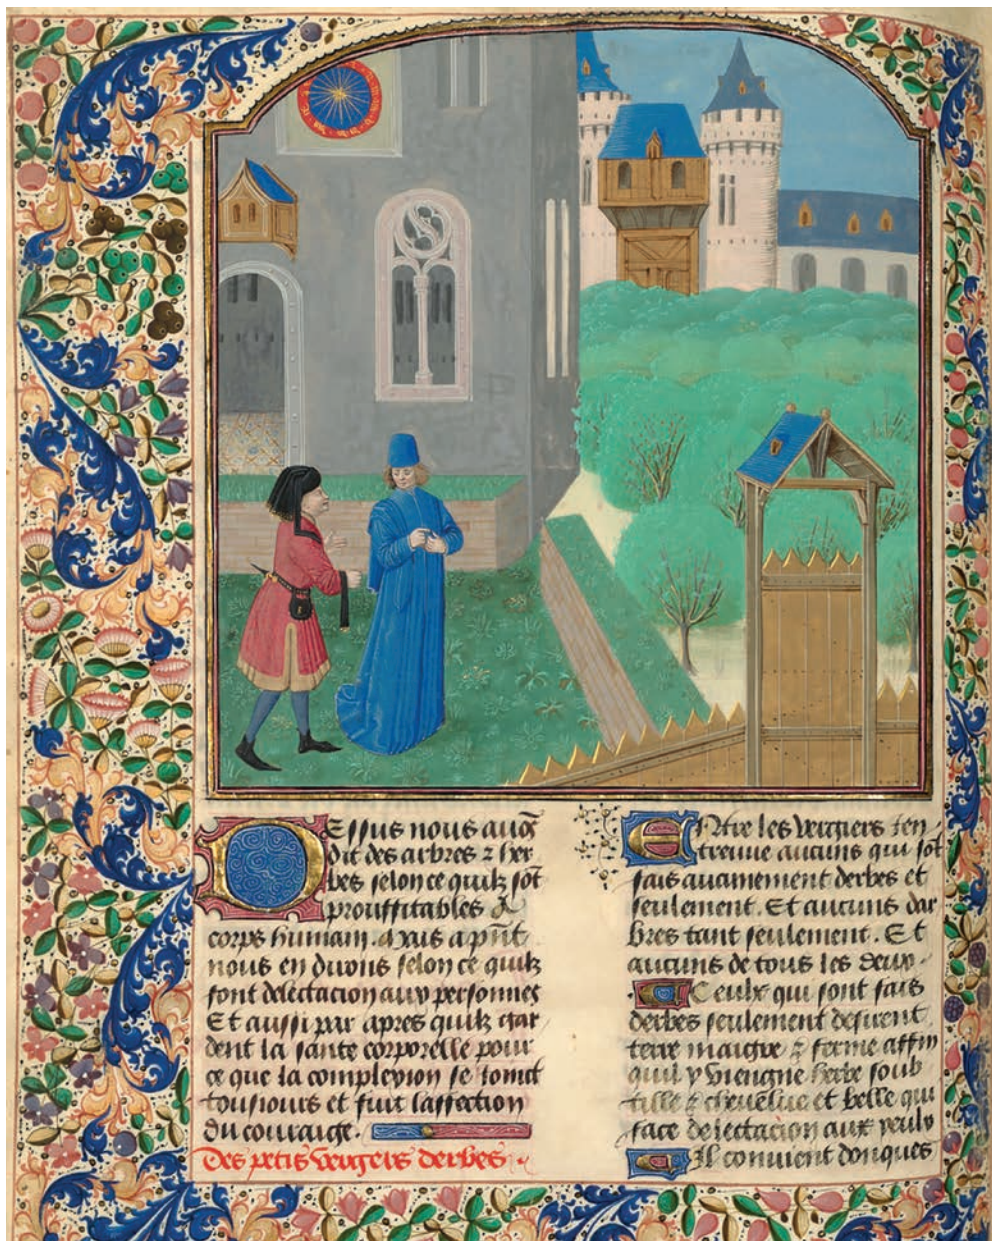 Dessus nous auõs
dit des arbres ⁊ her
bes selon ce quilz sõt
prouffitables au
corps humain. Mais a pñt
nous en dirons selon ce quilz
font delectacion aux personnes
Et aussi par apres quilz gar
dent la sante corporelle pour
ce que la complexion se ioinct
tousiours et suit laffection
du couraige.
Des petis vergiers derbes.
Entre les vergiers len
treuue aucuns qui sõt
fais aucunement derbes et
seulement. Et aucuns dar
bres tant seulement. Et
aucuns de tous les deux.
Ceulx qui sont fais
derbes seulement desirent
terre maigre ⁊ ferme affin
quil y viengne herbe soub
tille ⁊ cheuelue et belle qui
face delectacion aux yeulx
Il conuient donques